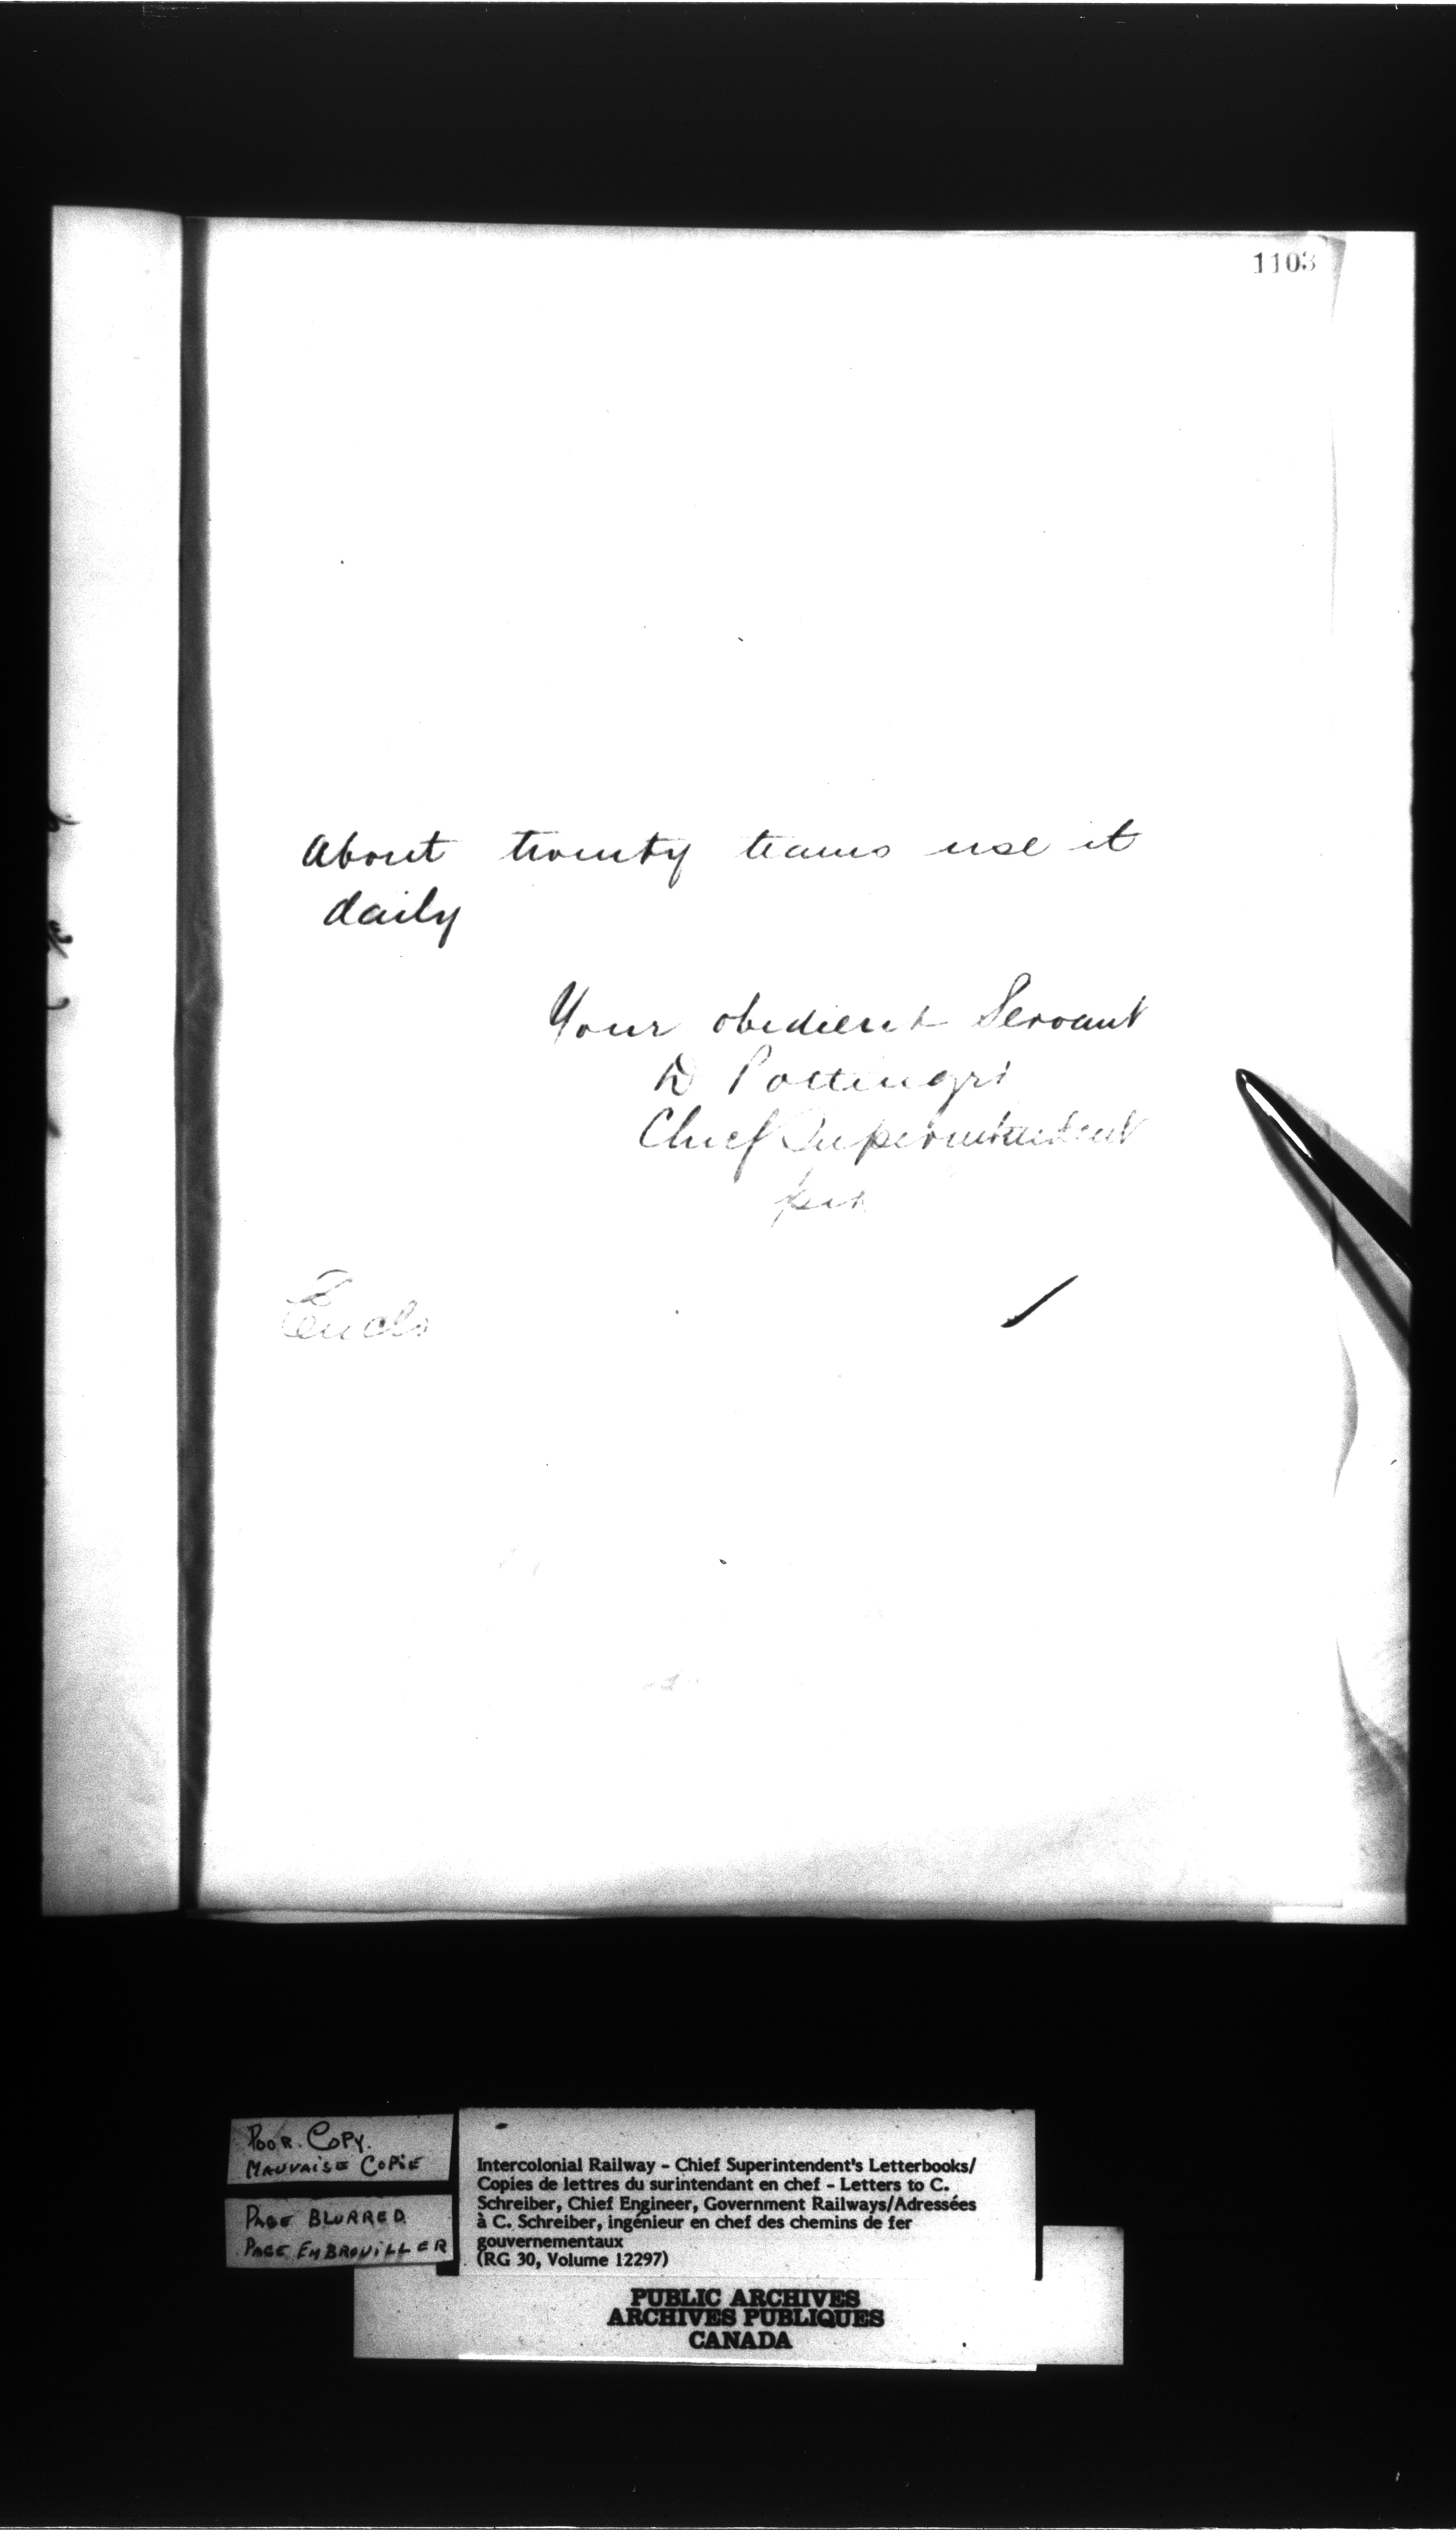 1103
About twenty teams use it
daily
Your obedient Servant
D Pottinger
Chief Superintendent
per
Encls
POOR COPY.
MAUVAISE COPIE
PAGE BLURRED
PAGE EMBROUILLER
Intercolonial Railway – Chief Superintendent's Letterbooks/
Copies de lettres du surintendant en chef – Letters to C.
Schreiber, Chief Engineer, Government Railways/Adressées
à C. Schreiber, ingénieur en chef des chemins de fer
gouvernementaux
(RG 30, Volume 12297)
PUBLIC ARCHIVES
ARCHIVES PUBLIQUES
CANADA